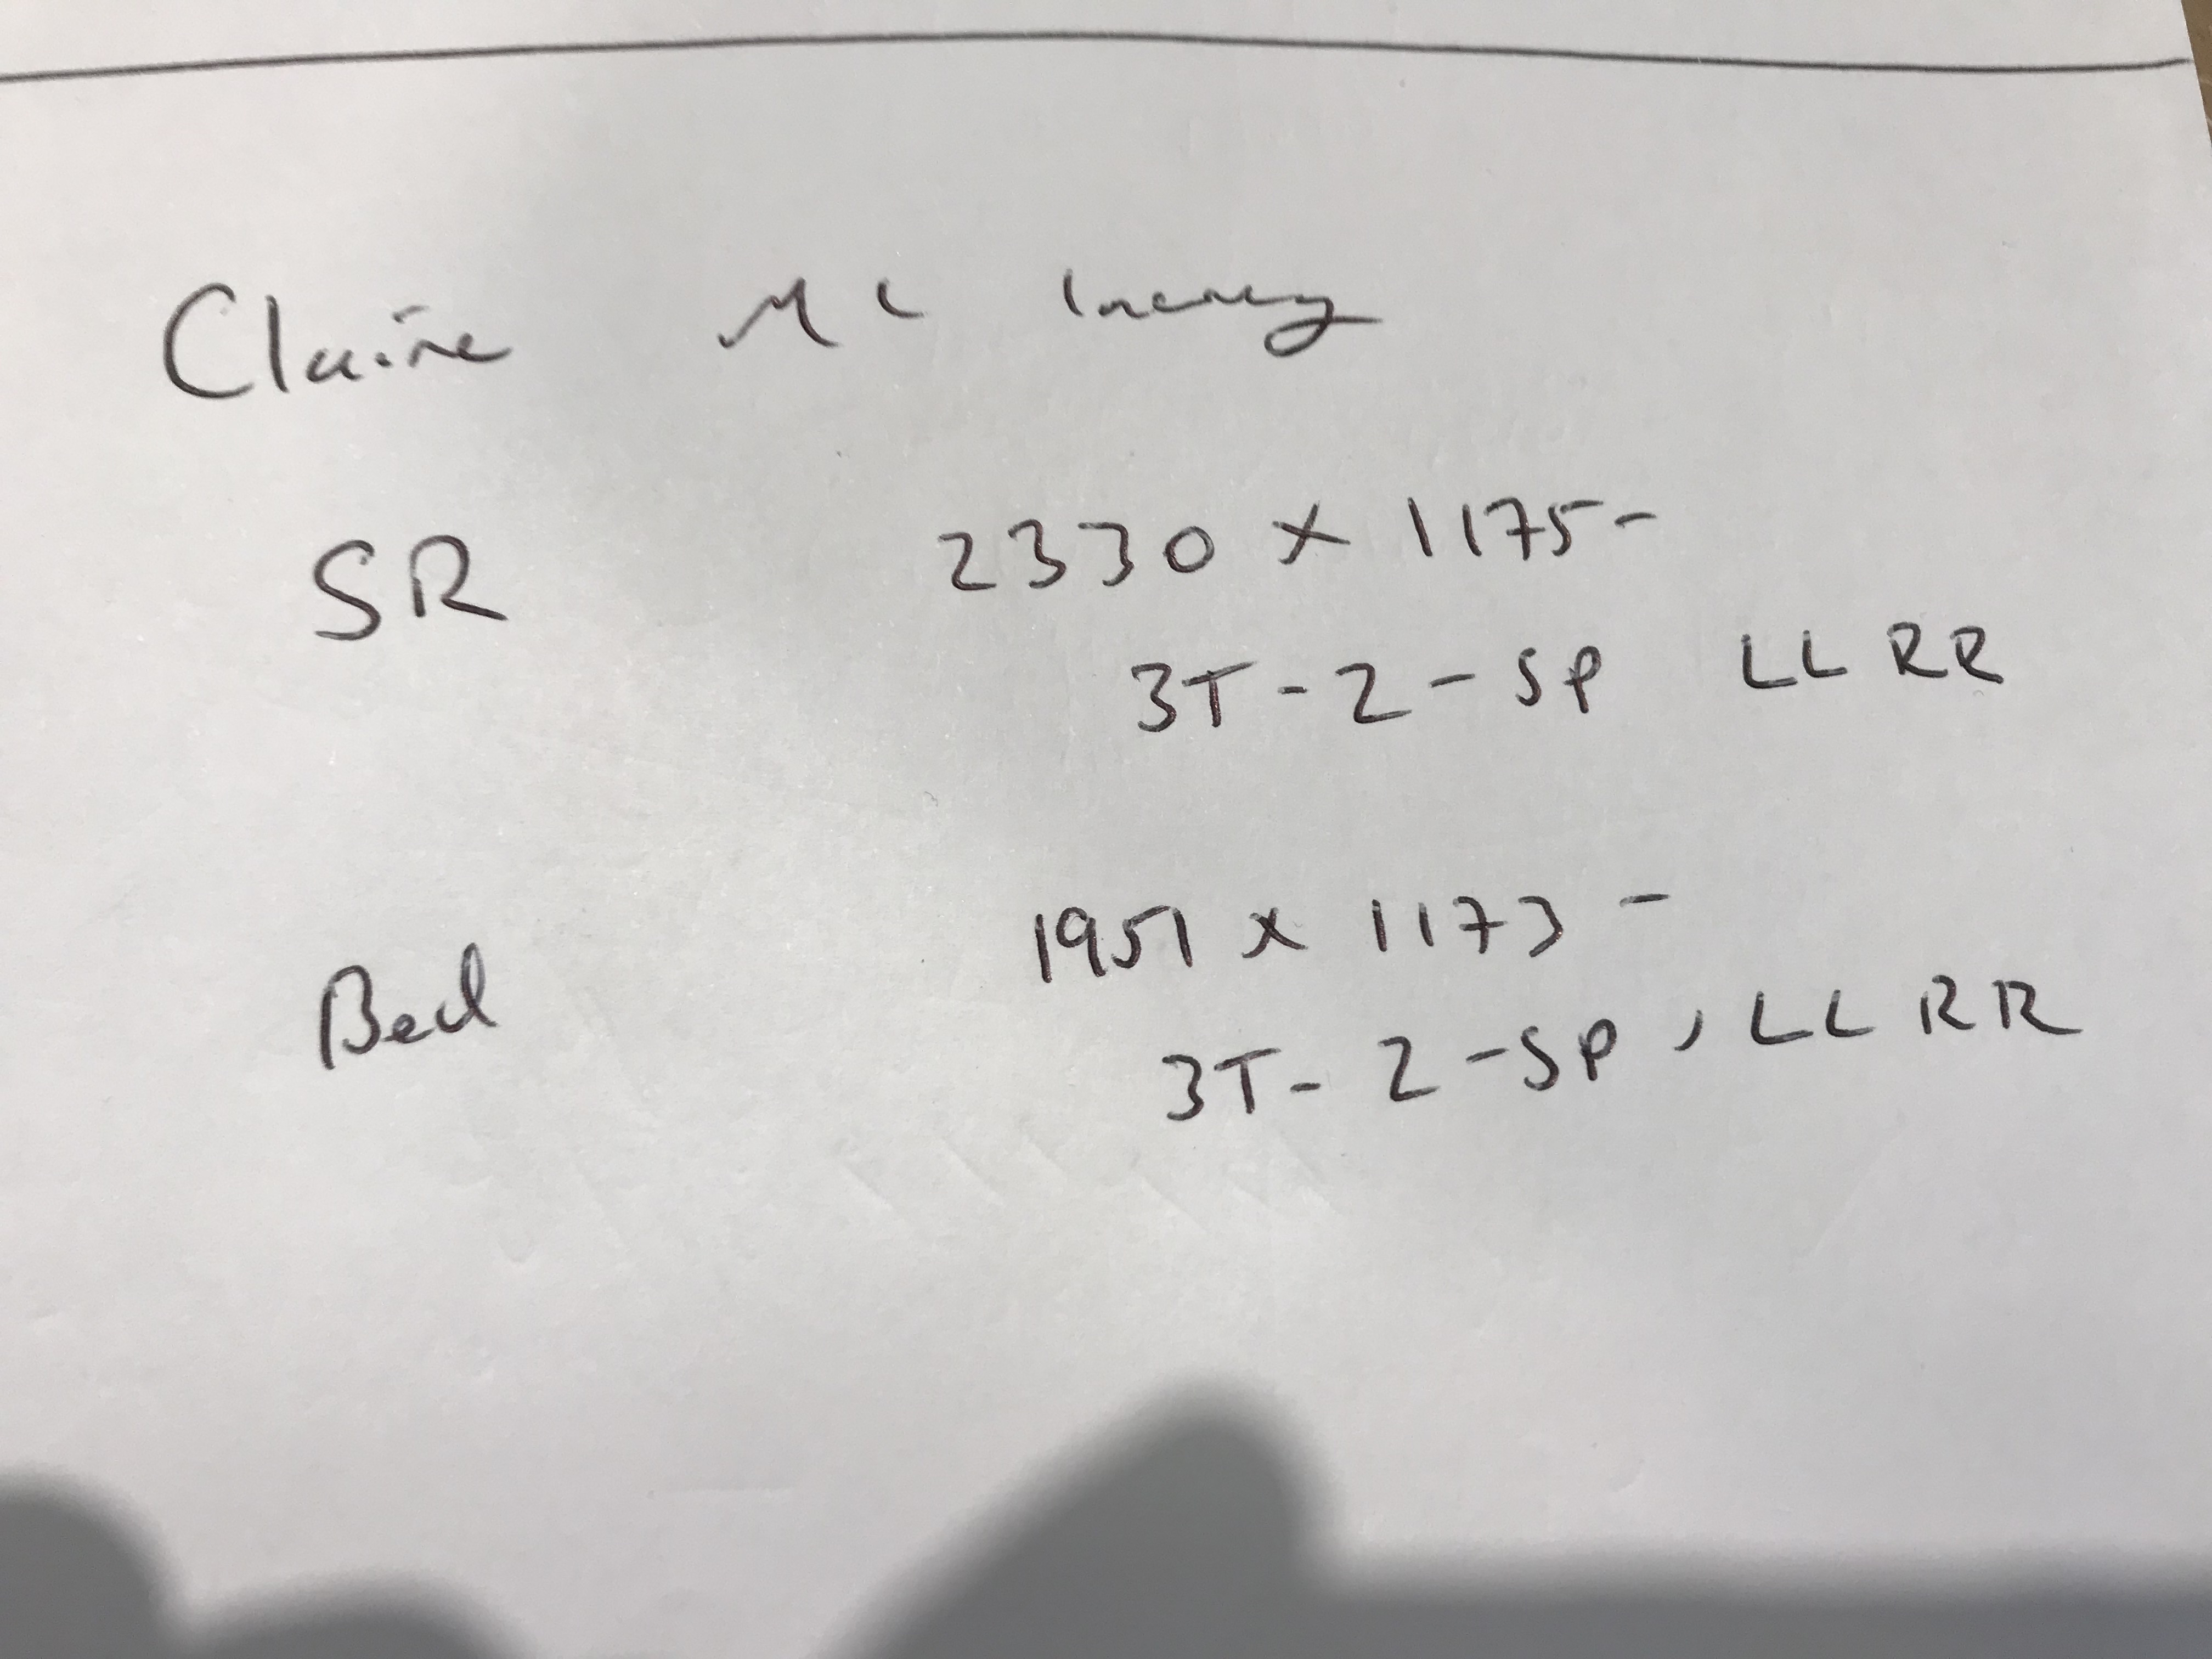 Claire Mc
SR 2330 x 1175-
3T-2-SP LL RR
Bed 1951 x 1173 -
3T-2-SP, LL RR